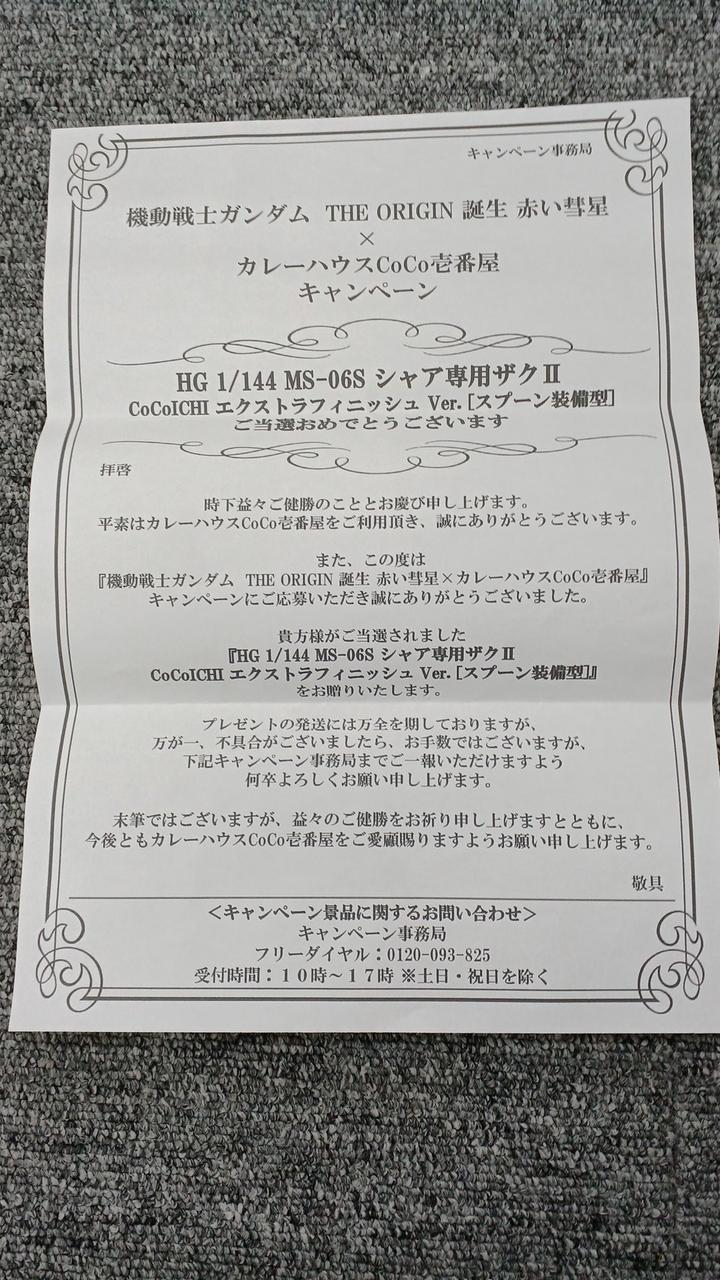 キャンペーン事務局
機動戦士ガンダム THE ORIGIN 誕生 赤い彗星
×
カレーハウスCoCo壱番屋
キャンペーン
HG 1/144 MS-06S シャア専用ザクⅡ
CoCoICHI エクストラフィニッシュ Ver.[スプーン装備型]
ご当選おめでとうございます
拝啓
時下益々ご健勝のこととお慶び申し上げます。
平素はカレーハウスCoCo壱番屋をご利用頂き、誠にありがとうございます。
また、この度は
『機動戦士ガンダム THE ORIGIN 誕生 赤い彗星×カレーハウスCoCo壱番屋』
キャンペーンにご応募いただき誠にありがとうございました。
貴方様がご当選されました
『HG 1/144 MS-06S シャア専用ザクⅡ
CoCoICHI エクストラフィニッシュ Ver.[スプーン装備型]』
をお贈りいたします。
プレゼントの発送には万全を期しておりますが、
万が一、不具合がございましたら、お手数ではございますが、
下記キャンペーン事務局までご一報いただけますよう
何卒よろしくお願い申し上げます。
末筆ではございますが、益々のご健勝をお祈り申し上げますとともに、
今後ともカレーハウスCoCo壱番屋をご愛顧賜りますようお願い申し上げます。
敬具
＜キャンペーン景品に関するお問い合わせ＞
キャンペーン事務局
フリーダイヤル：0120-093-825
受付時間：１０時～１７時 ※土日・祝日を除く